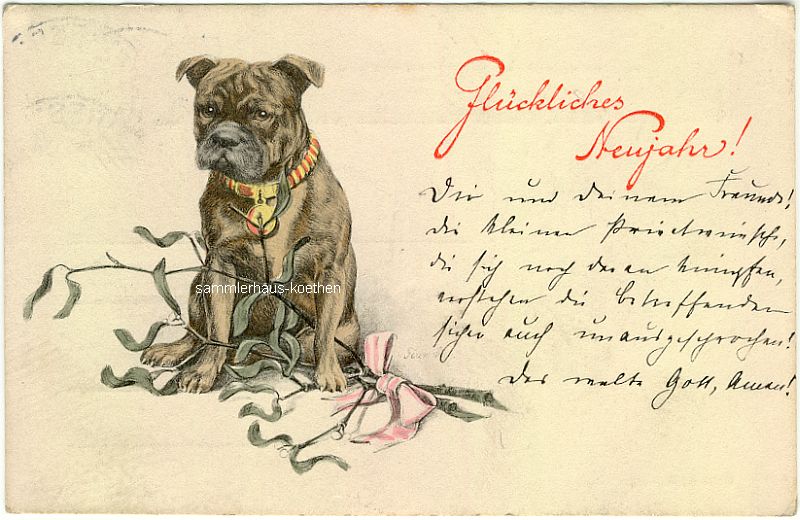 Glückliches
Neujahr!
Dir und deinem Freunde!
die kleinen Privatwünsche,
die sich noch daran knüpfen,
verstehen die betreffenden
sicher auch unausgesprochen!
Das walte Gott, Amen!
sammlerhaus-koethen